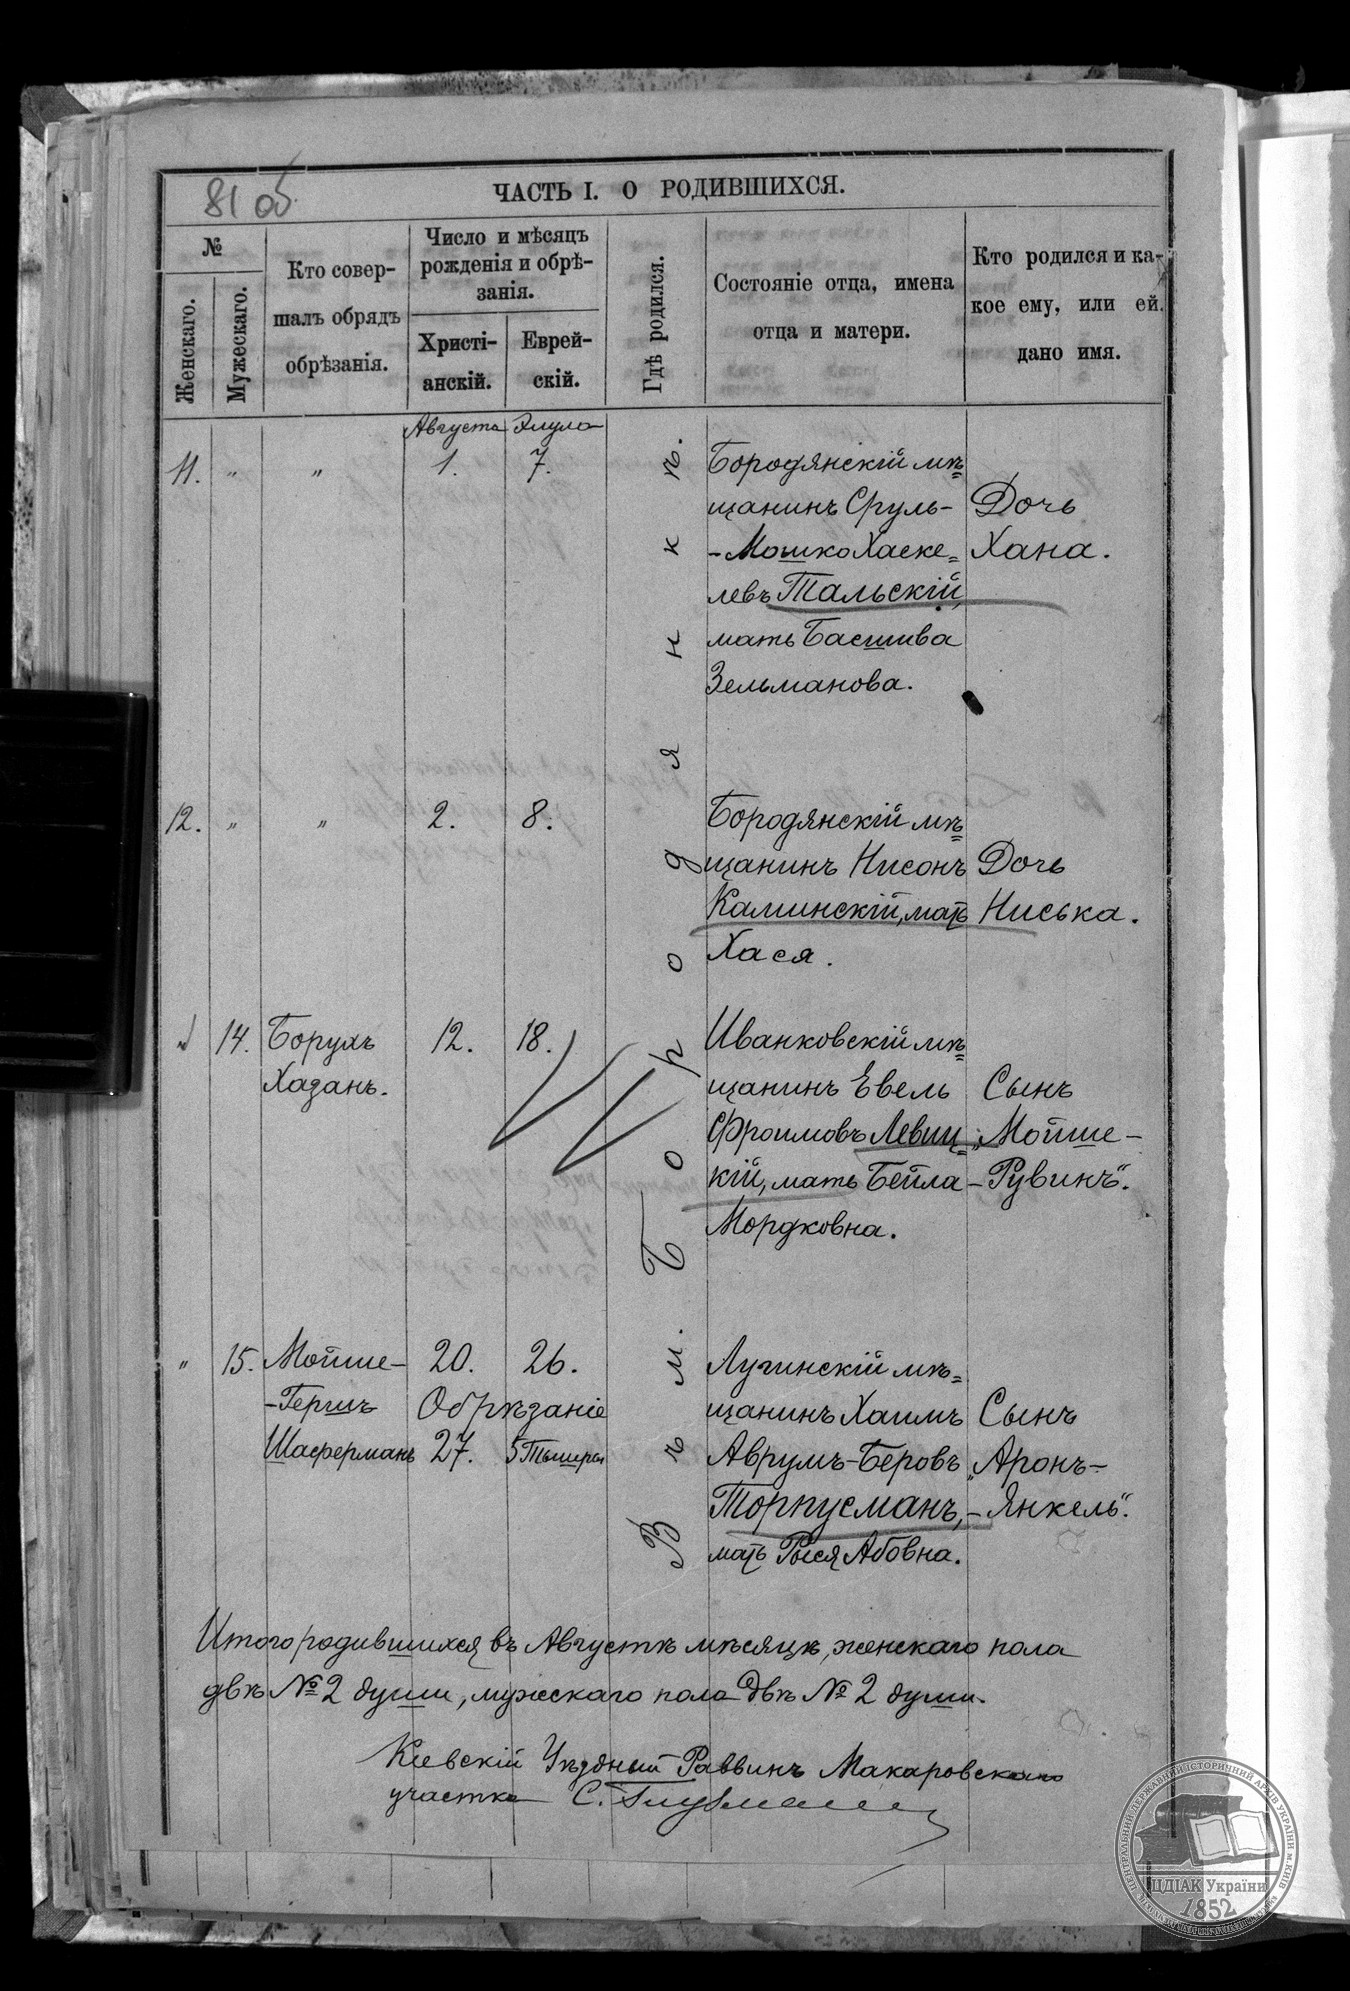 81 об.
ЧАСТЬ I. О РОДИВШИХСЯ.
№
Женскаго.
Мужескаго.
Кто совер-
шалъ обрядъ
обрѣзанія.
Число и мѣсяцъ
рожденія и обрѣ-
занія.
Христі-
анскій.
Еврей-
скій.
Гдѣ родился.
Состояніе отца, имена
отца и матери.
Кто родился и ка-
кое ему, или ей.
дано имя.
Августа Элула
Въ м. Бородянкѣ.
11. " " 1. 7.
Бородянскій мѣ=
щанинъ Сруль-
-Мошко Хаске=
левъ Тальскій,
мать Басшива
Зельманова.
Дочь
Хана.
12. " " 2. 8.
Бородянскій мѣ=
щанинъ Нисонъ
Каминскій, мать
Хася.
Дочь
Ниська.
14. Борухъ 12. 18.
Хазанъ.
Иванковскій мѣ=
щанинъ Евель
Фроимовъ Левиц=
кій, мать Бейла
Мордковна.
Сынъ
„Мойше-
-Рувинъ".
" 15. Мойше- 20. 26.
-Гершъ Обрѣзаніе
Шаферманъ 27. 5 Тышры
Лугинскій мѣ=
щанинъ Хаимъ
Аврумъ-Беровъ
Торпусманъ,
мать Рыся Абовна.
Сынъ
„Аронъ-
-Янкель".
Итого родившихся въ Августѣ мѣсяцѣ, женскаго пола
двѣ № 2 души, мужескаго пола двѣ № 2 души.
Кіевскій Уѣздный Раввинъ Макаровскаго
участка С. Глузман
ЦЕНТРАЛЬНИЙ ДЕРЖАВНИЙ ІСТОРИЧНИЙ АРХІВ УКРАЇНИ м. КИЇВ
ЦДІАК України
1852